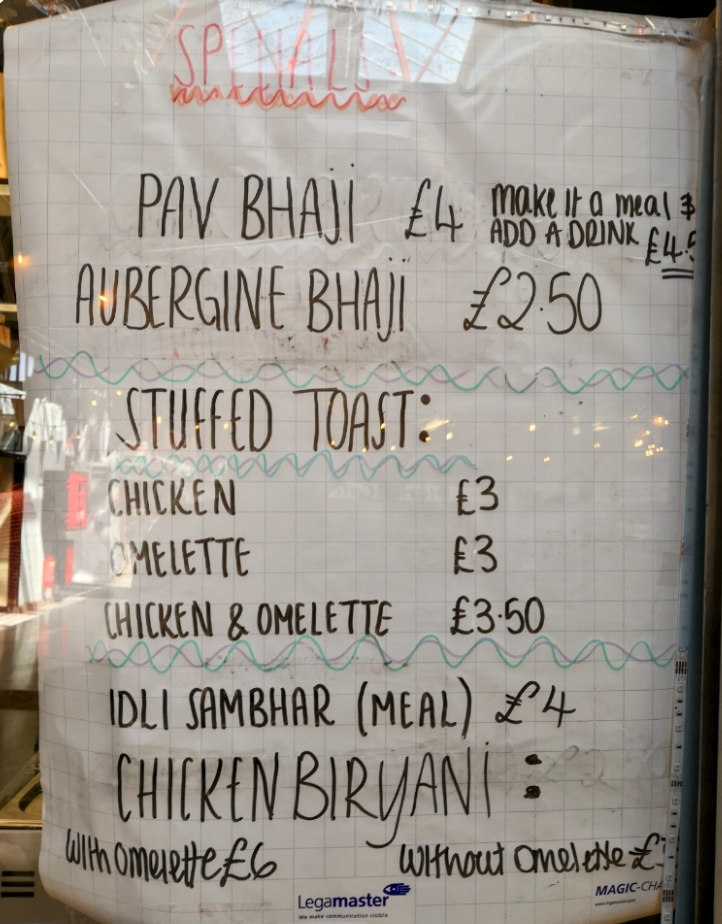 SPECIALS
PAV BHAJI £4 make it a meal &
ADD A DRINK £4.5
AUBERGINE BHAJI £2.50
STUFFED TOAST:
CHICKEN £3
OMELETTE £3
CHICKEN & OMELETTE £3.50
IDLI SAMBHAR (MEAL) £4
CHICKEN BIRYANI :
With Omelette £6 Without Omelette £
Legamaster
We make communication visible
MAGIC-CHA
www.legamaster.com